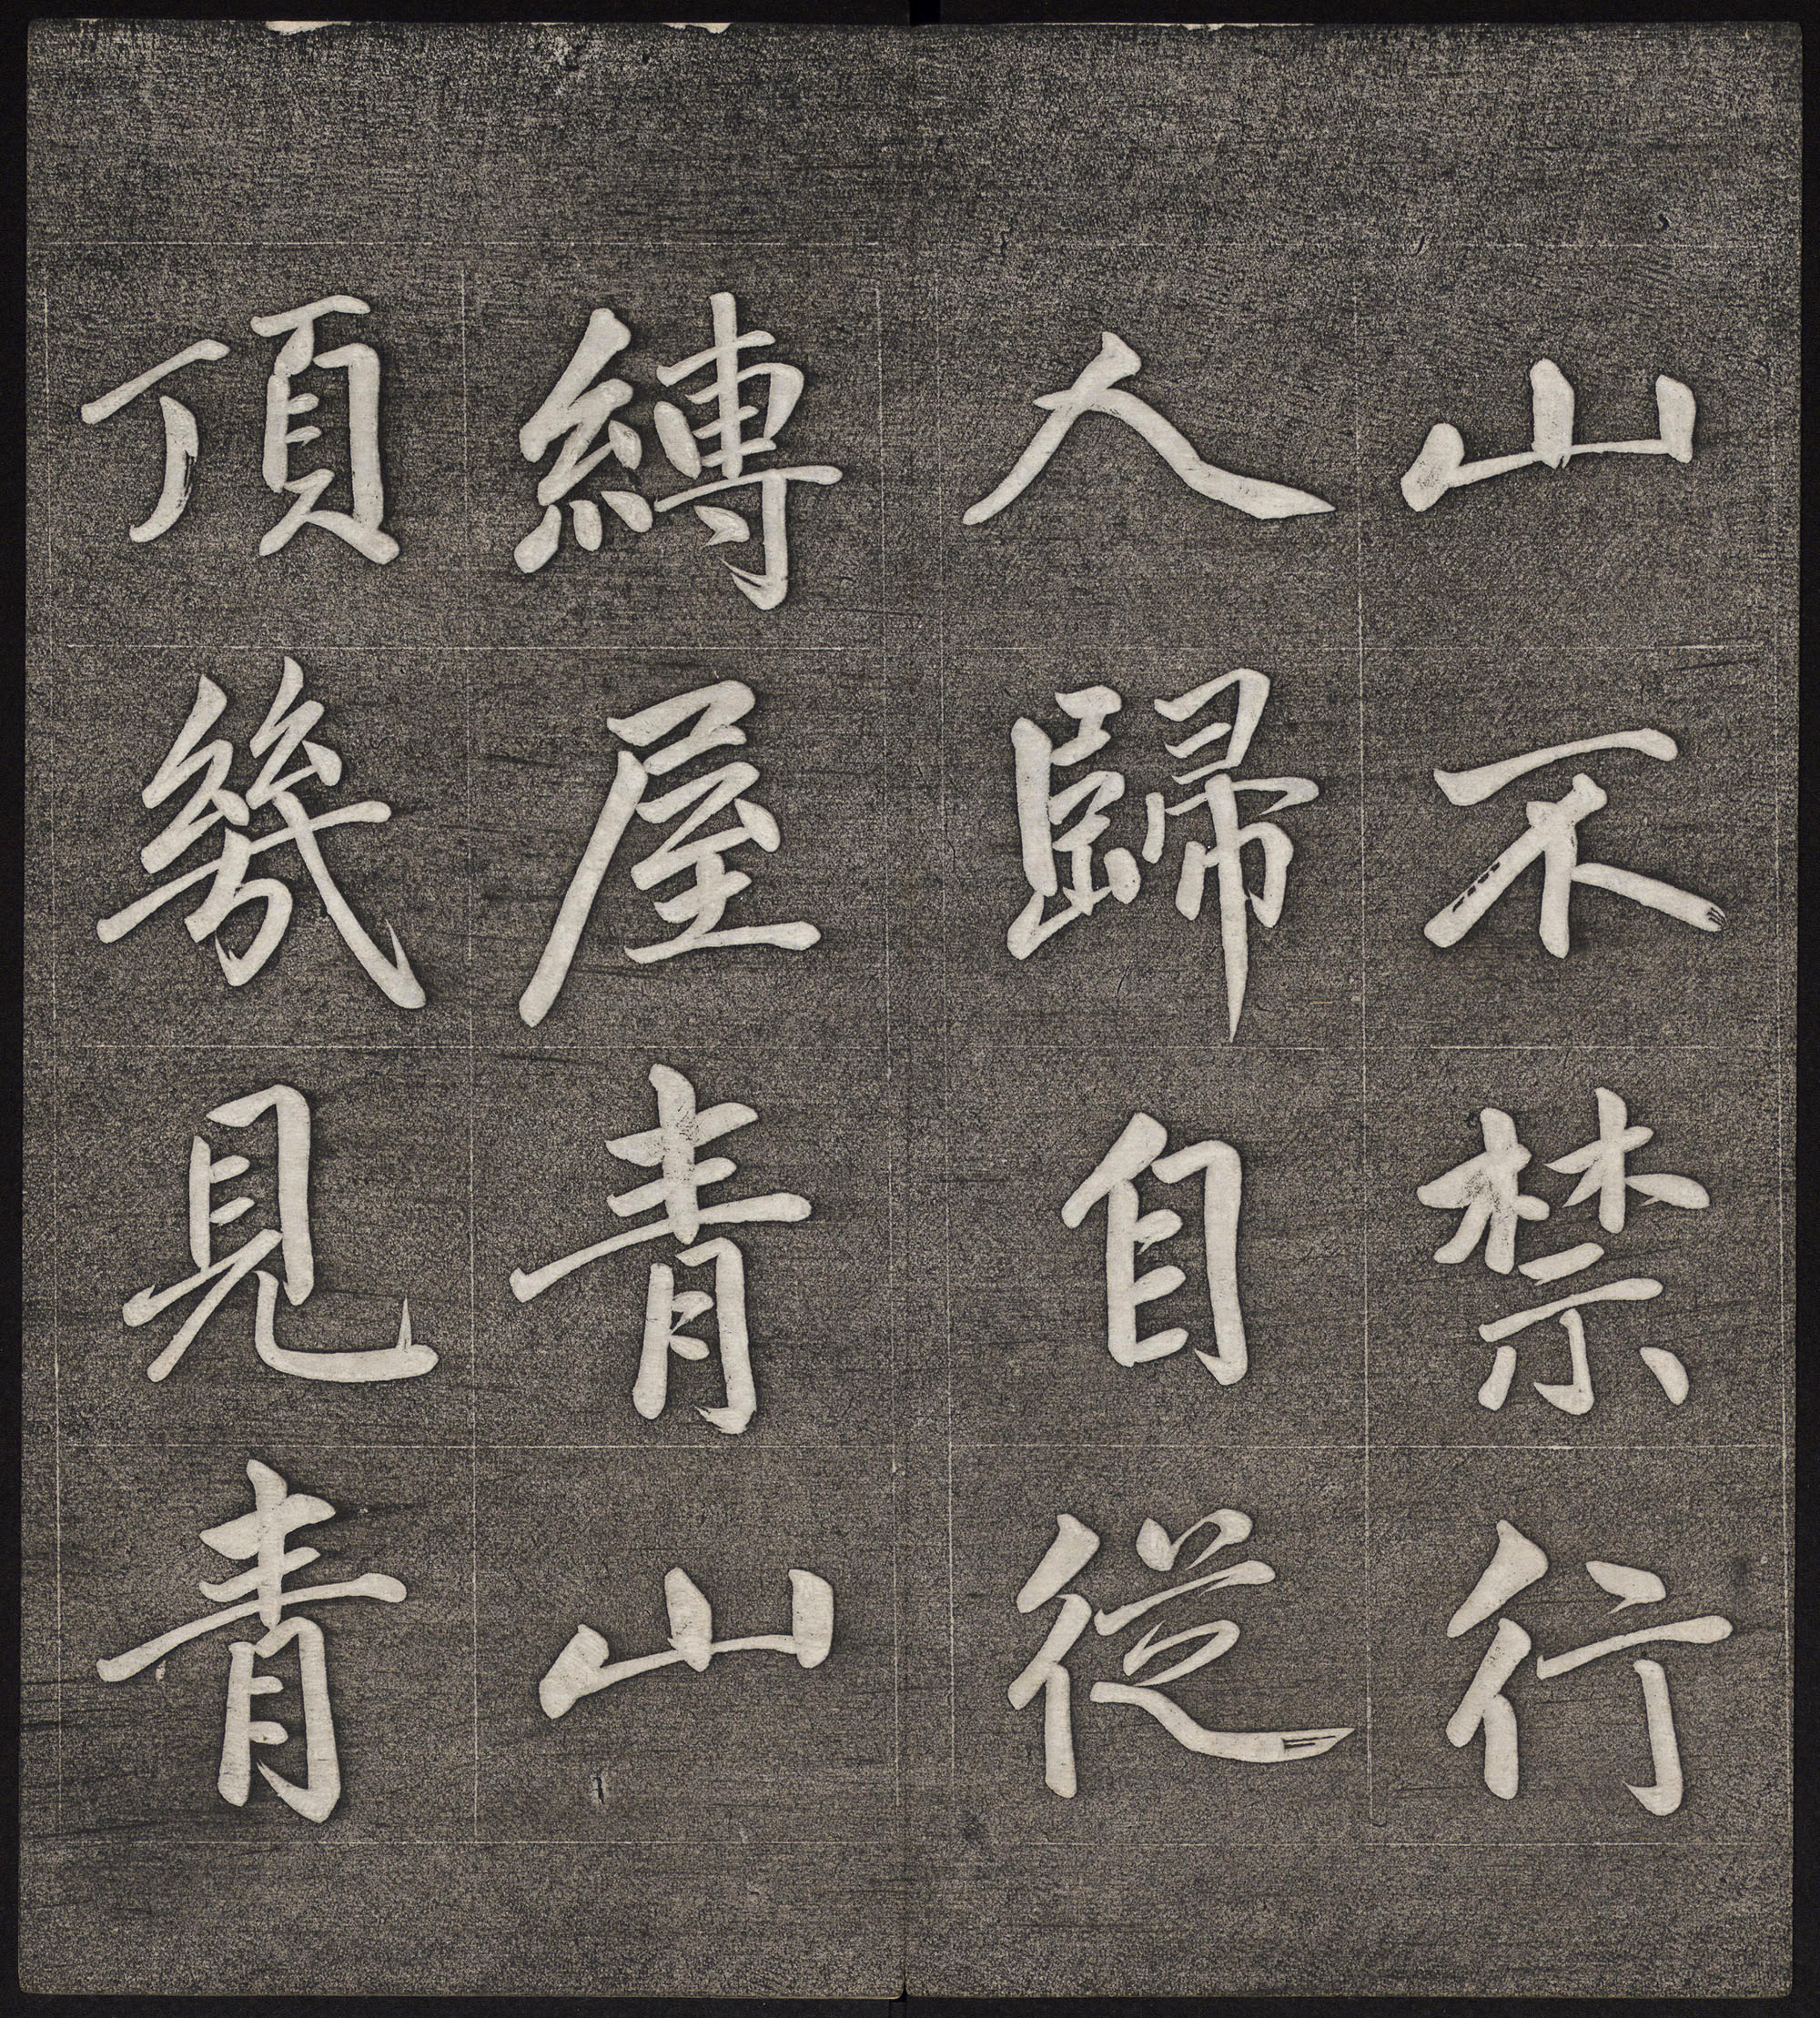 山不禁行
人歸自從
縛屋青山
頂幾見青